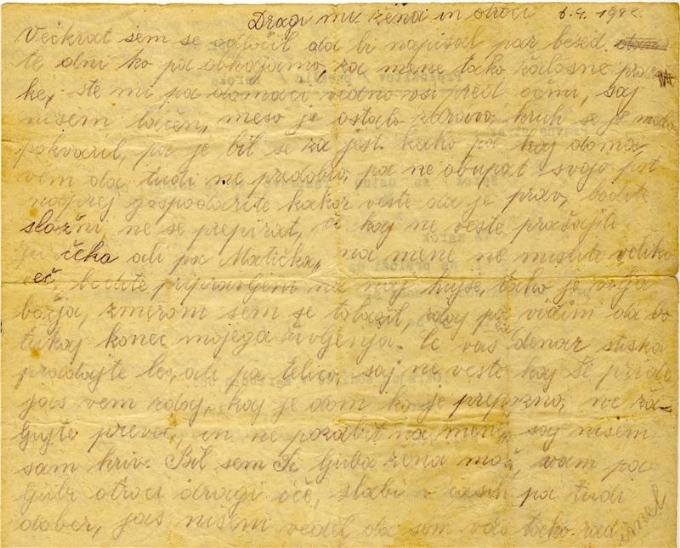 Dragi mi žena in otroci 5.4. 194
Večkrat sem se odločil da bi napisal par besed
te dni ko pa dohajamo za mene tako žalosne praz
ke, ste mi pa domači vidno vsi pred očmi, saj
nisem lačen, meso je ostalo zdravo kruh se je malo
pokvaril, pa je bil še za jest. kako pa kaj doma,
vem da tudi ne predobro, pa ne obupat svojo pot
naprej gospodarite kakor veste da je prav, bodite
složni, ne se prepirat, če kaj ne veste prašajte
čeka ali pa Matička, na mene ne mislite veliko
več, bodite pripravljeni na naj hujše, tako je volja
božja, zmirom sem se tolažil, zdaj pa vidim da bo
tukaj konec mojega življenja. če vas denar stiska
prodajte les, ali pa telico, saj ne veste kaj še pride
jas vem zdaj, kaj je dom ko je prepozno, ne ža-
lujte preveč, in ne pozabit na mene, saj nisem
sam kriv. Bil sem Ti ljuba žena mož, vam pa
ljubi otroci dragi oče, slabi v časih pa tudi
dober, jas nisem vedel da sem vas tako rad
imel